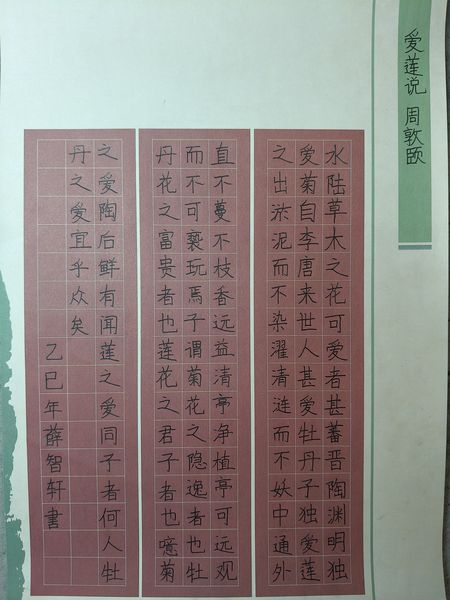 爱莲说 周敦颐
水陆草木之花可爱者甚蕃晋陶渊明独
爱菊自李唐来世人甚爱牡丹予独爱莲
之出淤泥而不染濯清涟而不妖中通外
直不蔓不枝香远益清亭净植亭可远观
而不可亵玩焉予谓菊花之隐逸者也牡
丹花之富贵者也莲花之君子者也噫菊
之爱陶后鲜有闻莲之爱同予者何人牡
丹之爱宜乎众矣
乙巳年薛智轩書